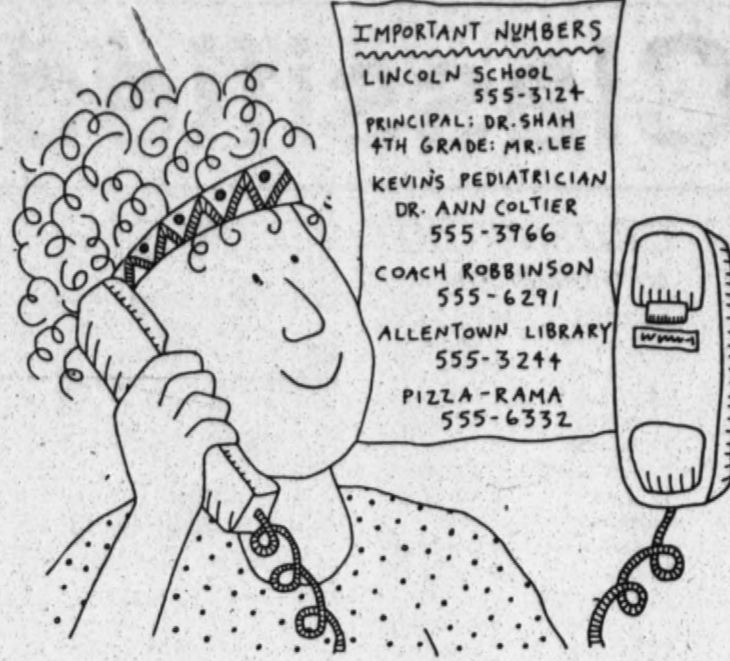 IMPORTANT NUMBERS
LINCOLN SCHOOL
555-3124
PRINCIPAL: DR. SHAH
4TH GRADE: MR. LEE
KEVIN'S PEDIATRICIAN
DR. ANN COLTIER
555-3966
COACH ROBBINSON
555-6291
ALLENTOWN LIBRARY
555-3244
PIZZA-RAMA
555-6332